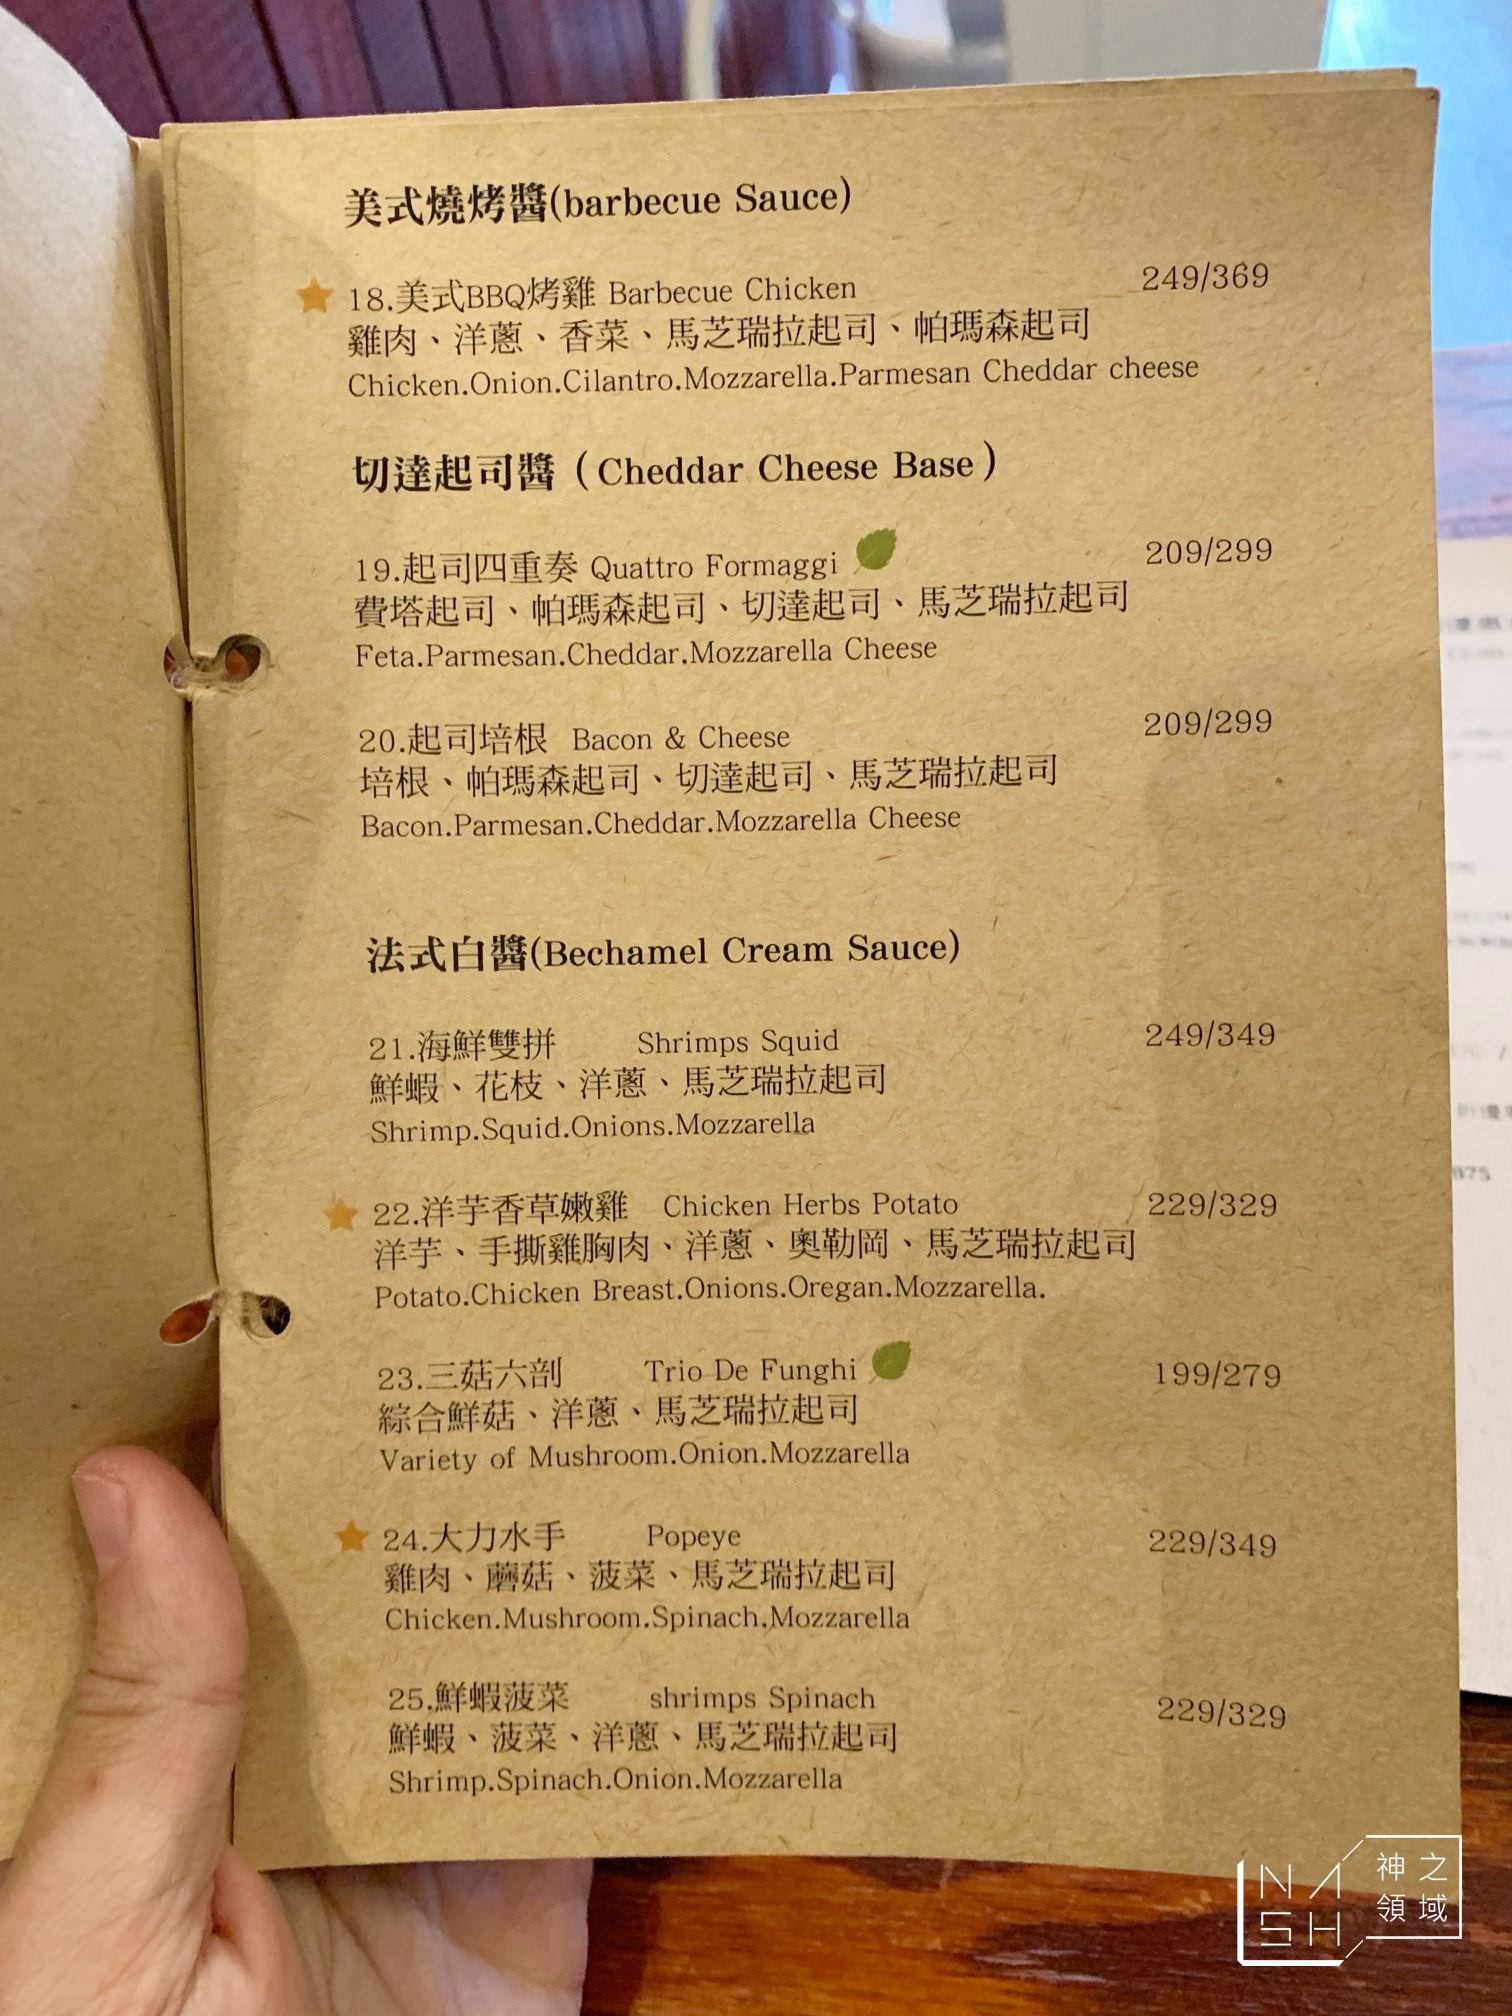 美式燒烤醬(barbecue Sauce)
18.美式BBQ烤雞 Barbecue Chicken 249/369
雞肉、洋蔥、香菜、馬芝瑞拉起司、帕瑪森起司
Chicken.Onion.Cilantro.Mozzarella.Parmesan Cheddar cheese
切達起司醬（Cheddar Cheese Base）
19.起司四重奏 Quattro Formaggi 209/299
費塔起司、帕瑪森起司、切達起司、馬芝瑞拉起司
Feta.Parmesan.Cheddar.Mozzarella Cheese
20.起司培根 Bacon & Cheese 209/299
培根、帕瑪森起司、切達起司、馬芝瑞拉起司
Bacon.Parmesan.Cheddar.Mozzarella Cheese
法式白醬(Bechamel Cream Sauce)
21.海鮮雙拼 Shrimps Squid 249/349
鮮蝦、花枝、洋蔥、馬芝瑞拉起司
Shrimp.Squid.Onions.Mozzarella
22.洋芋香草嫩雞 Chicken Herbs Potato 229/329
洋芋、手撕雞胸肉、洋蔥、奧勒岡、馬芝瑞拉起司
Potato.Chicken Breast.Onions.Oregan.Mozzarella.
23.三菇六剖 Trio De Funghi 199/279
綜合鮮菇、洋蔥、馬芝瑞拉起司
Variety of Mushroom.Onion.Mozzarella
24.大力水手 Popeye 229/349
雞肉、蘑菇、菠菜、馬芝瑞拉起司
Chicken.Mushroom.Spinach.Mozzarella
25.鮮蝦菠菜 shrimps Spinach 229/329
鮮蝦、菠菜、洋蔥、馬芝瑞拉起司
Shrimp.Spinach.Onion.Mozzarella
NASH
神之領域